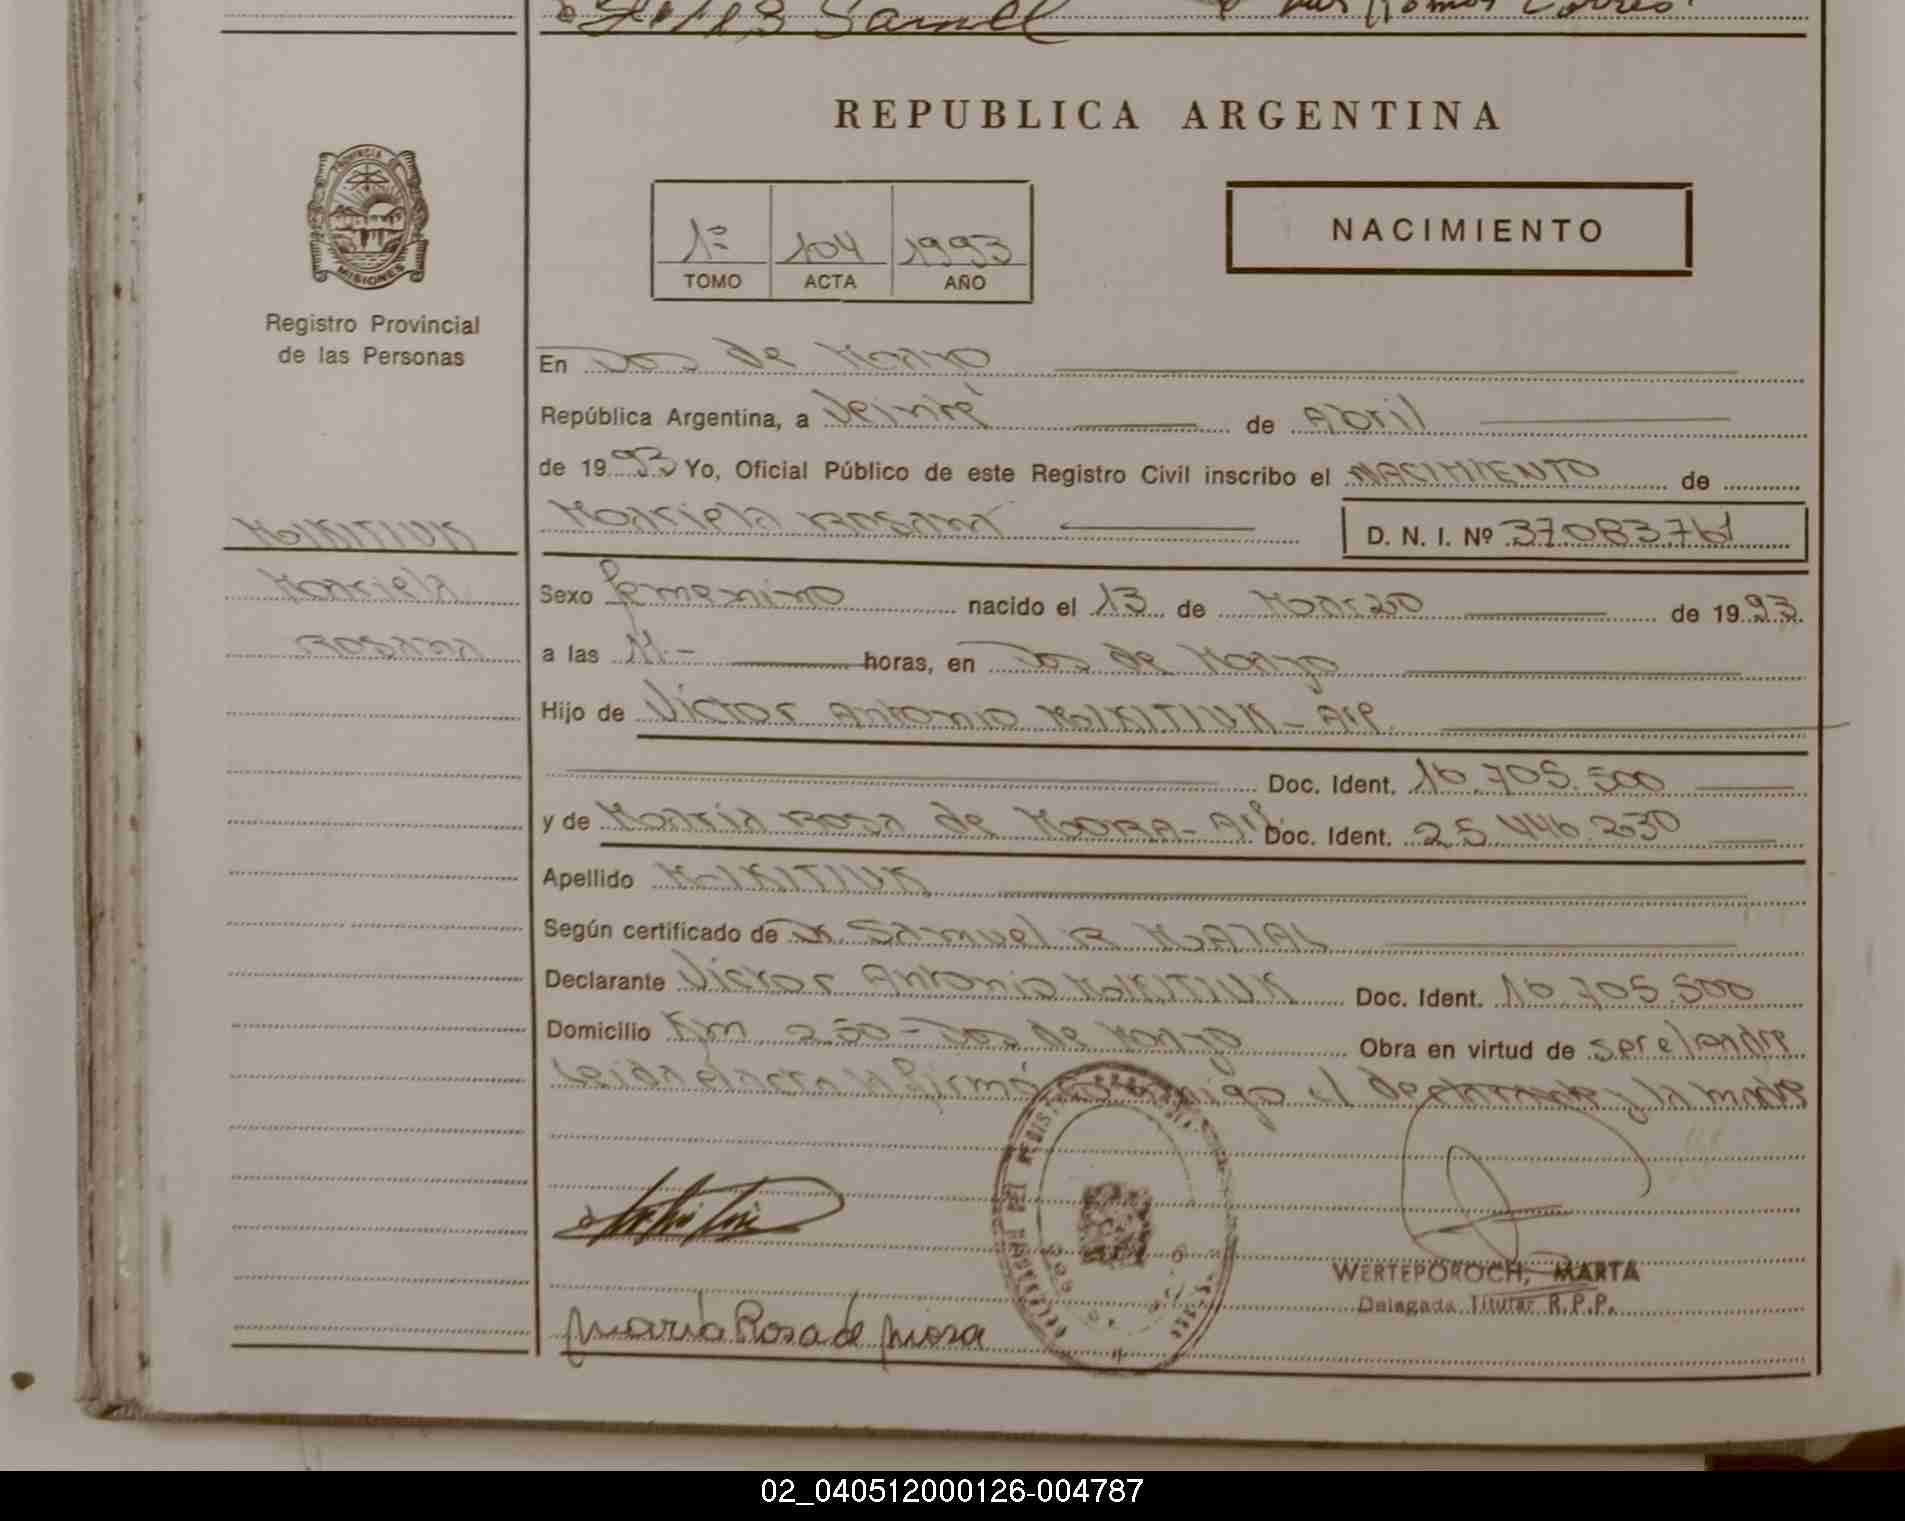 Samuel
REPUBLICA ARGENTINA
PROVINCIA DE
MISIONES
1º 104 1993
TOMO ACTA AÑO
NACIMIENTO
Registro Provincial
de las Personas
En Dos de Mayo
República Argentina, a Veinte de Abril
de 1993 Yo, Oficial Público de este Registro Civil inscribo el NACIMIENTO de
Mariela ROSANA D. N. I. Nº
Mariela
ROSANA
Sexo femenino nacido el 13 de Marzo de 1993.
a las 11- horas, en Dos de Mayo
Hijo de Victor Antonio - Arg.
Doc. Ident. 16.705.500
y de María Rosa de MORA - Arg. Doc. Ident. 25.446.230
Apellido
Según certificado de Dr. Samuel R.
Declarante Victor Antonio Doc. Ident. 16.705.500
Domicilio Km 250 - Dos de Mayo Obra en virtud de ser el padre
Leida el acta la firmó conmigo el declarante y la madre
WERTEPOROCH, MARTA
Delegada Titular R.P.P.
María Rosa de Mora
02_040512000126-004787